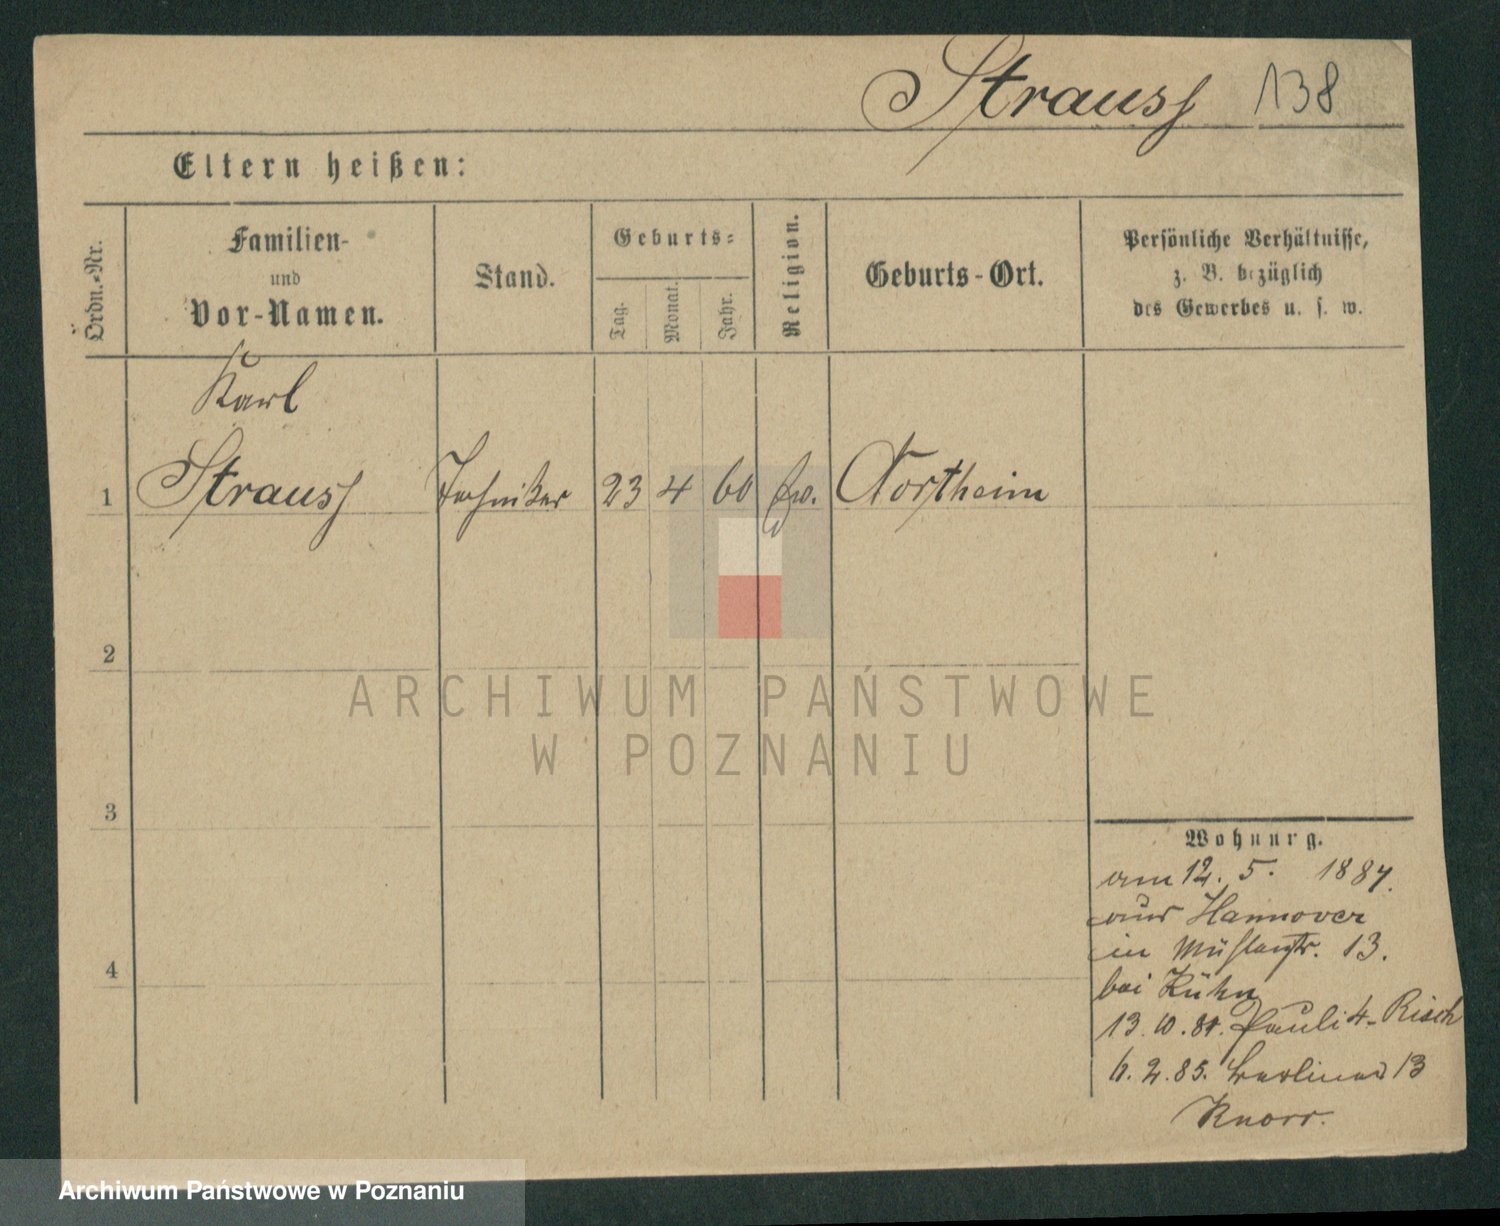 Strauss 138
Eltern heißen:
Ordn.-Nr.
Familien-
und
Vor-Namen.
Stand.
Geburts-
Tag.
Monat.
Jahr.
Religion.
Geburts-Ort.
Persönliche Verhältnisse,
z. B. bezüglich
des Gewerbes u. s. w.
Karl
1 Strauss Techniker 23 4 60 Northeim
2
3
4
ARCHIWUM PAŃSTWOWE
W POZNANIU
Wohnung.
am 12. 5. 1884.
aus Hannover
in Mühlenstr. 13.
bei Kühn
13. 10. 84. Pauli 4- Risch
6. 2. 85. Berliner 13
Knorr.
Archiwum Państwowe w Poznaniu